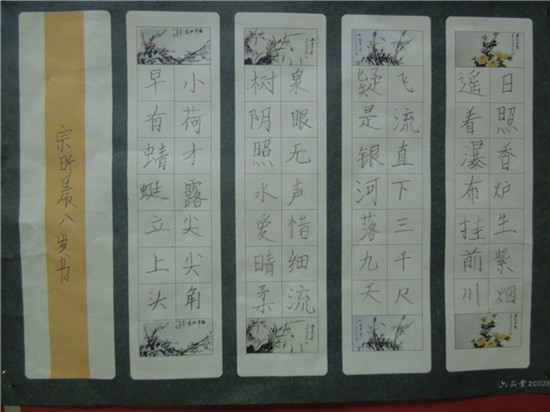 日照香炉生紫烟
遥看瀑布挂前川
飞流直下三千尺
疑是银河落九天
泉眼无声惜细流
树阴照水爱晴柔
小荷才露尖尖角
早有蜻蜓立上头
宗昕晨八岁书
六品堂 ZC026